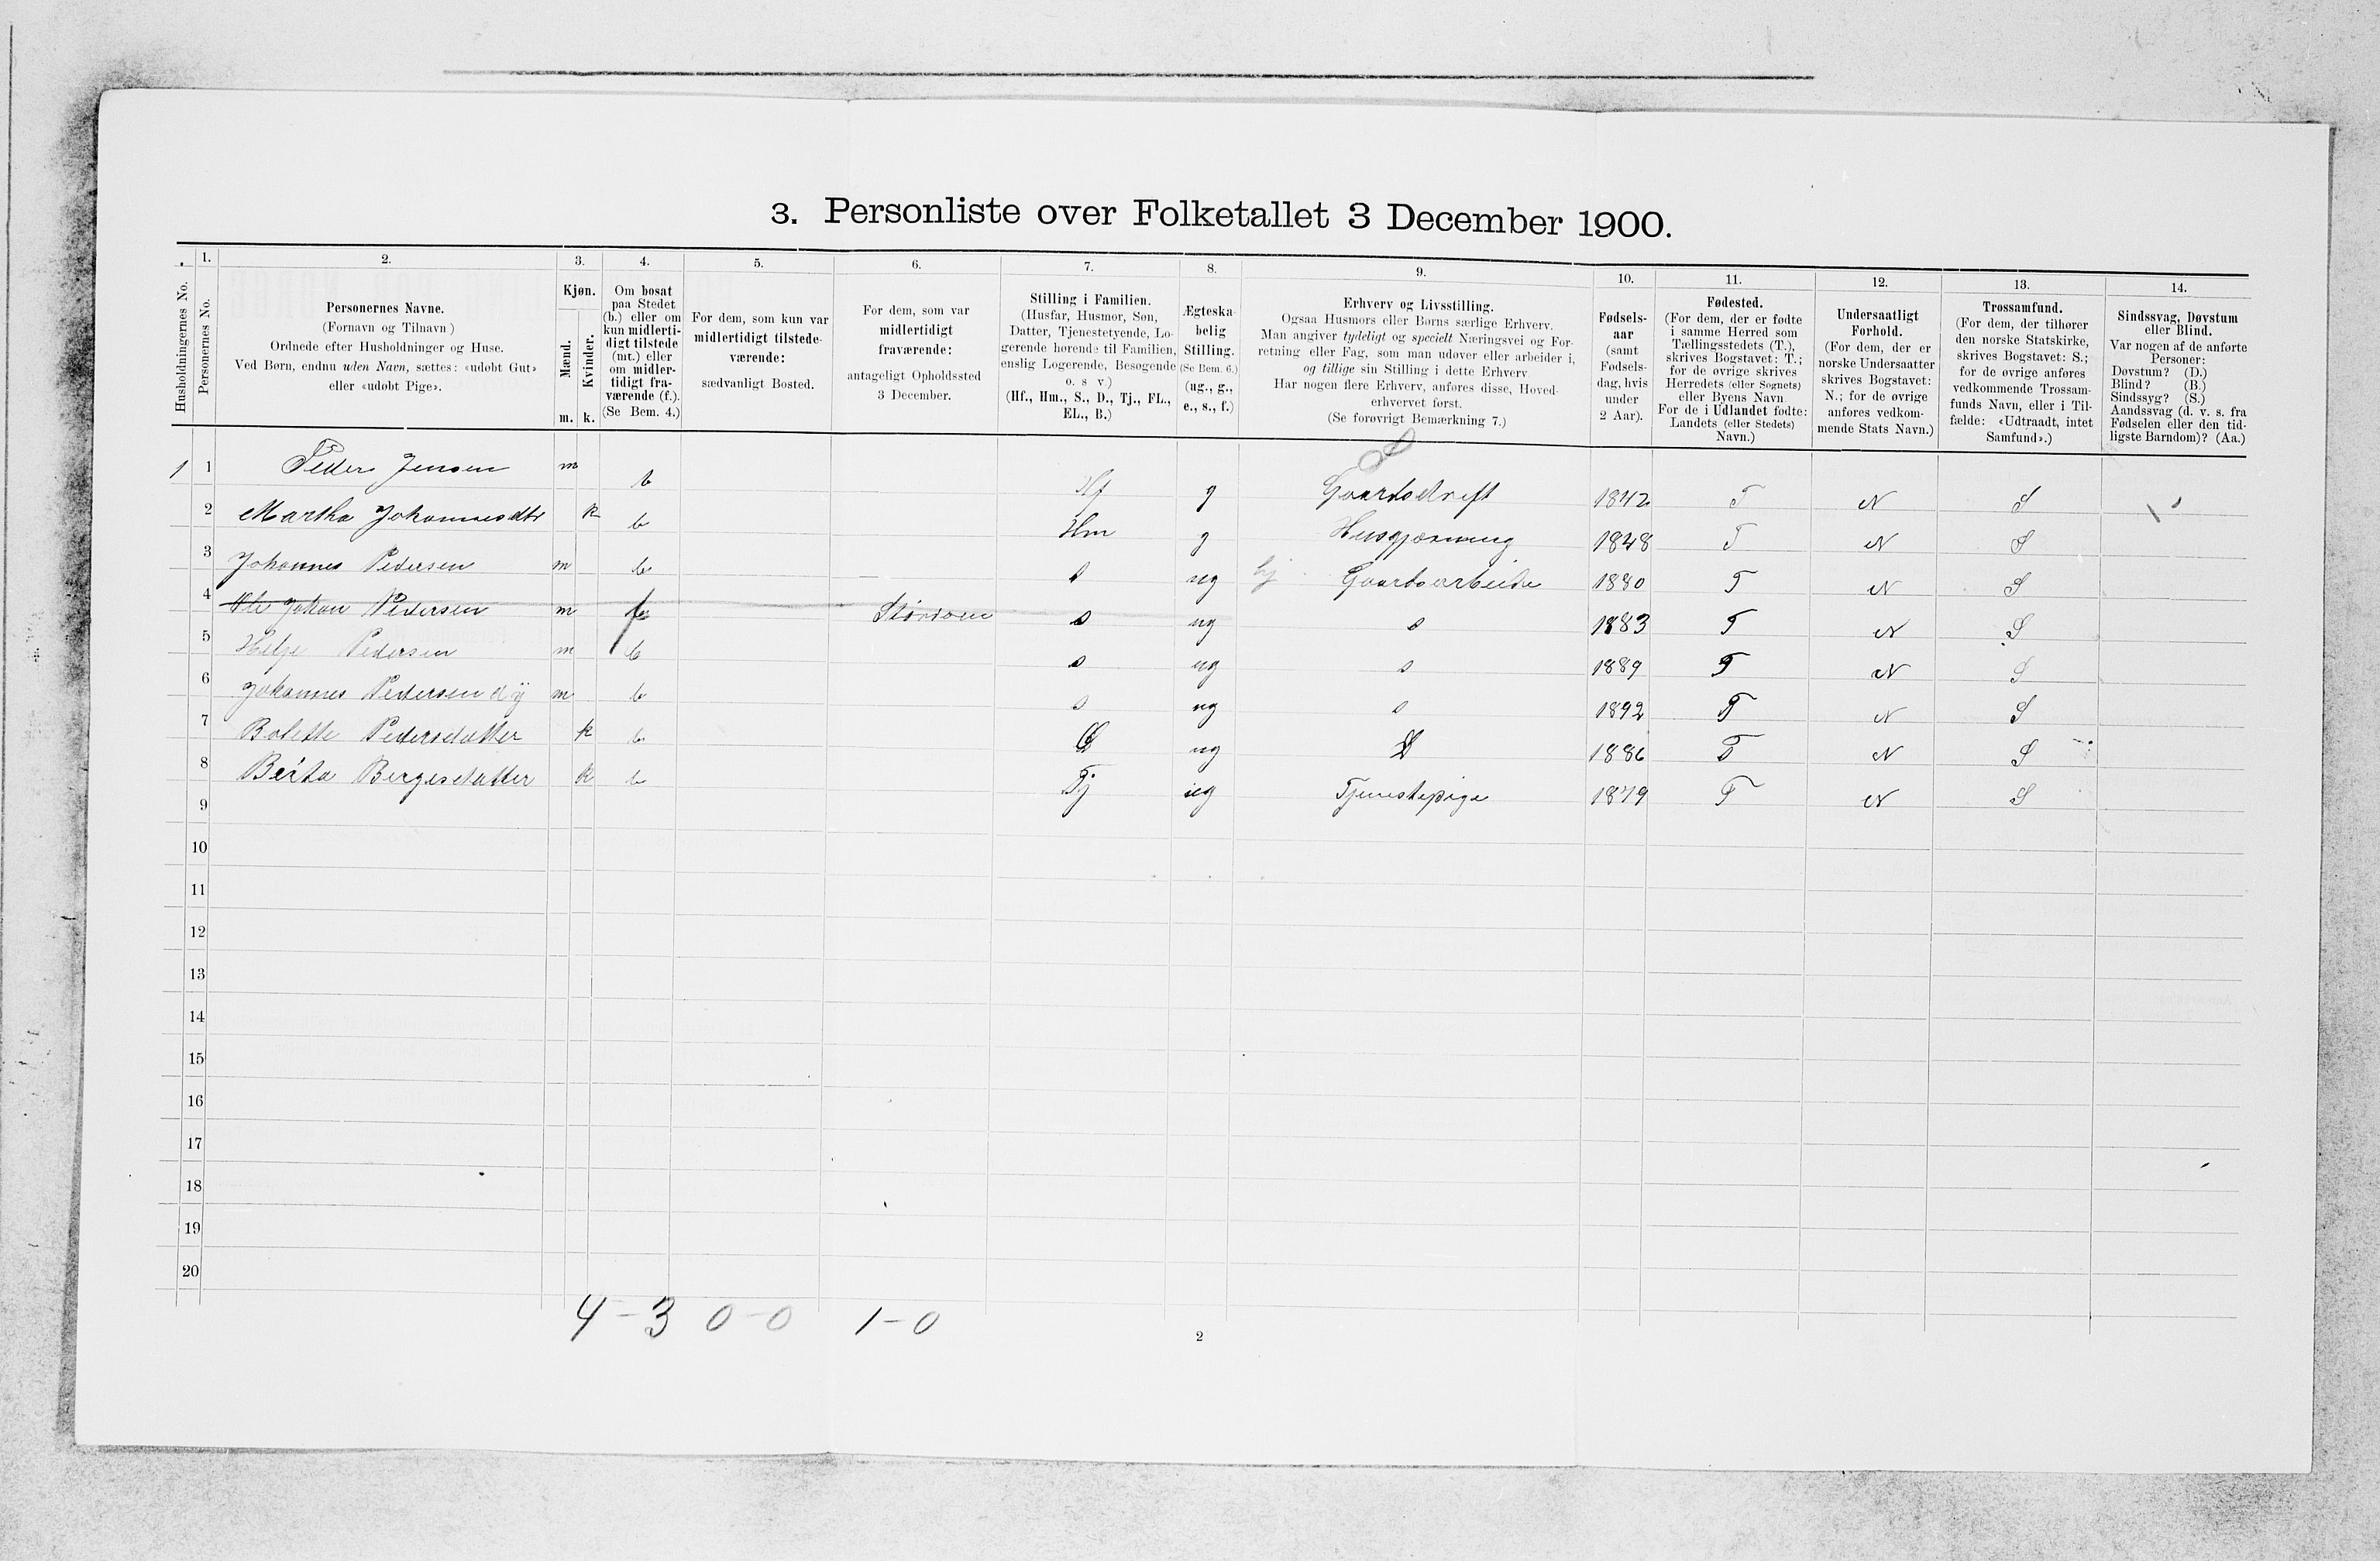 3. Personliste over Folketallet 3 December 1900.
1. 2. 3. 4. 5. 6. 7. 8. 9. 10. 11. 12. 13. 14.
Husholdningernes No.
Personernes No.
Personernes Navne.
(Fornavn og Tilnavn)
Ordnede efter Husholdninger og Huse.
Ved Børn, endnu uden Navn, sættes: «udøbt Gut»
eller «udøbt Pige».
Kjøn.
Mænd.
Kvinder.
m. k.
Om bosat
paa Stedet
(b.) eller om
kun midlerti-
digt tilstede
(mt.) eller
om midler-
tidigt fra-
værende (f.).
(Se Bem. 4.)
For dem, som kun var
midlertidigt tilstede-
værende:
sædvanligt Bosted.
For dem, som var
midlertidigt
fraværende:
antageligt Opholdssted
3 December.
Stilling i Familien.
(Husfar, Husmor, Søn,
Datter, Tjenestetyende, Lo-
gerende hørende til Familien,
enslig Logerende, Besøgende
o. s v.)
(Hf., Hm., S., D., Tj., FL.,
EL., B.)
Ægteska-
belig
Stilling.
(Se Bem. 6.)
(ug., g.,
e., s., f.)
Erhverv og Livsstilling.
Ogsaa Husmors eller Børns særlige Erhverv.
Man angiver tydeligt og specielt Næringsvei og For-
retning eller Fag, som man udøver eller arbeider i,
og tillige sin Stilling i dette Erhverv
Har nogen flere Erhverv, anføres disse, Hoved-
erhvervet først.
(Se forøvrigt Bemærkning 7.)
Fødsels-
aar
(samt
Fødsels-
dag, hvis
under
2 Aar).
Fødested.
(For dem, der er fødte
i samme Herred som
Tællingsstedets (T.),
skrives Bogstavet: T.;
for de øvrige skrives
Herredets (eller Sognets)
eller Byens Navn
For de i Udlandet fødte:
Landets (eller Stedets)
Navn.)
Undersaatligt
Forhold.
(For dem, der er
norske Undersaatter
skrives Bogstavet:
N.; for de øvrige
anføres vedkom-
mende Stats Navn.)
Trossamfund.
(For dem, der tilhører
den norske Statskirke,
skrives Bogstavet: S.;
for de øvrige anføres
vedkommende Trossam-
funds Navn, eller i Til-
fælde: «Udtraadt, intet
Samfund».)
Sindssvag, Døvstum
eller Blind.
Var nogen af de anførte
Personer:
Døvstum? (D.)
Blind? (B.)
Sindssyg? (S.)
Aandssvag (d. v. s. fra
Fødselen eller den tid-
ligste Barndom)? (Aa.)
1 1 Peder Jensen m b Hf g Gaardsdrift 1842 T N S
2 Martha Johannesdtr k b Hm g Husgjerning 1848 T N S
3 Johannes Pedersen m b s ug hj Gaardsarbeide 1880 T N S
4 Ole Johan Pedersen m f s ug s 1883 T N S
5 Helje Pedersen m b s ug s 1889 T N S
6 Johannes Pedersen dÿ m b s ug s 1892 T N S
7 Bolette Pedersdatter k b D ug D 1886 T N S
8 Berta Bergesdatter k b Tj ug Tjenestepige 1879 T N S
9
10
11
12
13
14
15
16
17
18
19
20
4 - 3 0 - 0 1 - 0
2